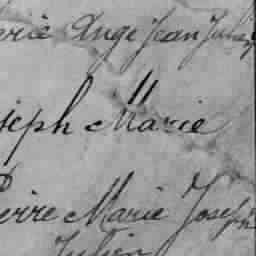 Ange Jean Julien
"
seph Marie
Pierre Marie Joseph
Julien